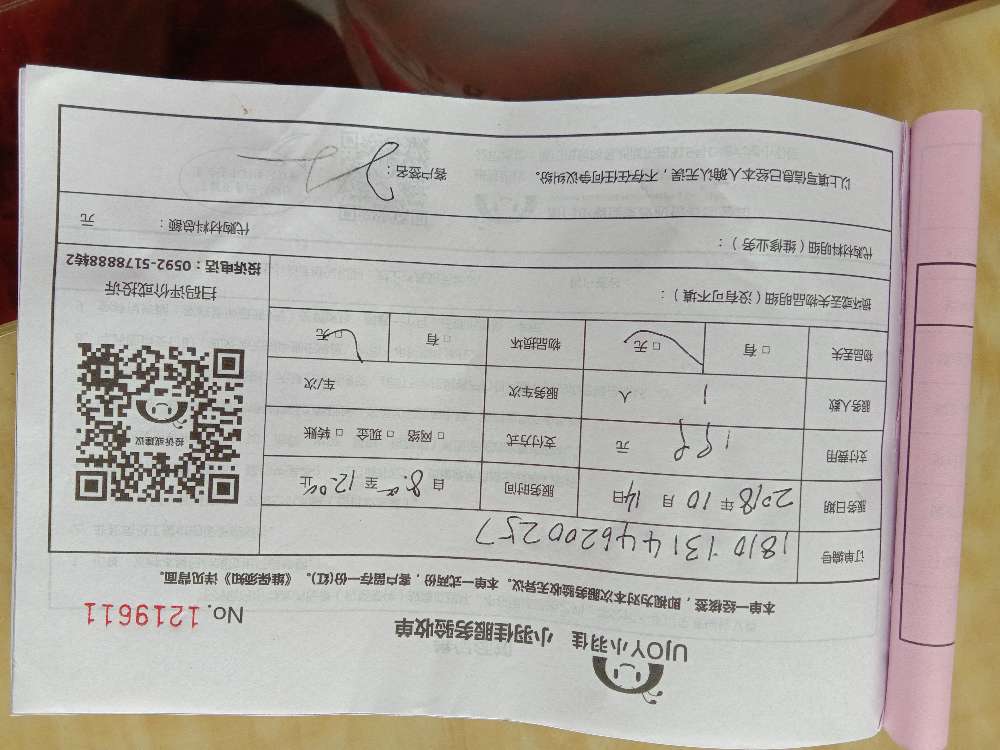 UJOY小羽佳 小羽佳服务验收单
No. 1219611
本单一经核签，即视为对本次服务验收无异议。本单一式两份，客户留存一份(红)。《维保须知》详见背面。
订单编号 18101314462002​57
服务日期 2018年10月14日 服务时间 自8:00至12:00止
支付费用 199元 支付方式 □网络 □现金 □转账
服务人数 1人 服务车次 车/次
物品丢失 □有 □无 物品损坏 □有 □无
投诉或建议
扫码评价或投诉
投诉电话：0592-5178888转2
损坏或丢失物品明细（没有可不填）：
代购材料明细（维修业务）： 代购材料总额： 元
以上填写信息已经本人确认无误，不存在任何争议纠纷。 客户签名：